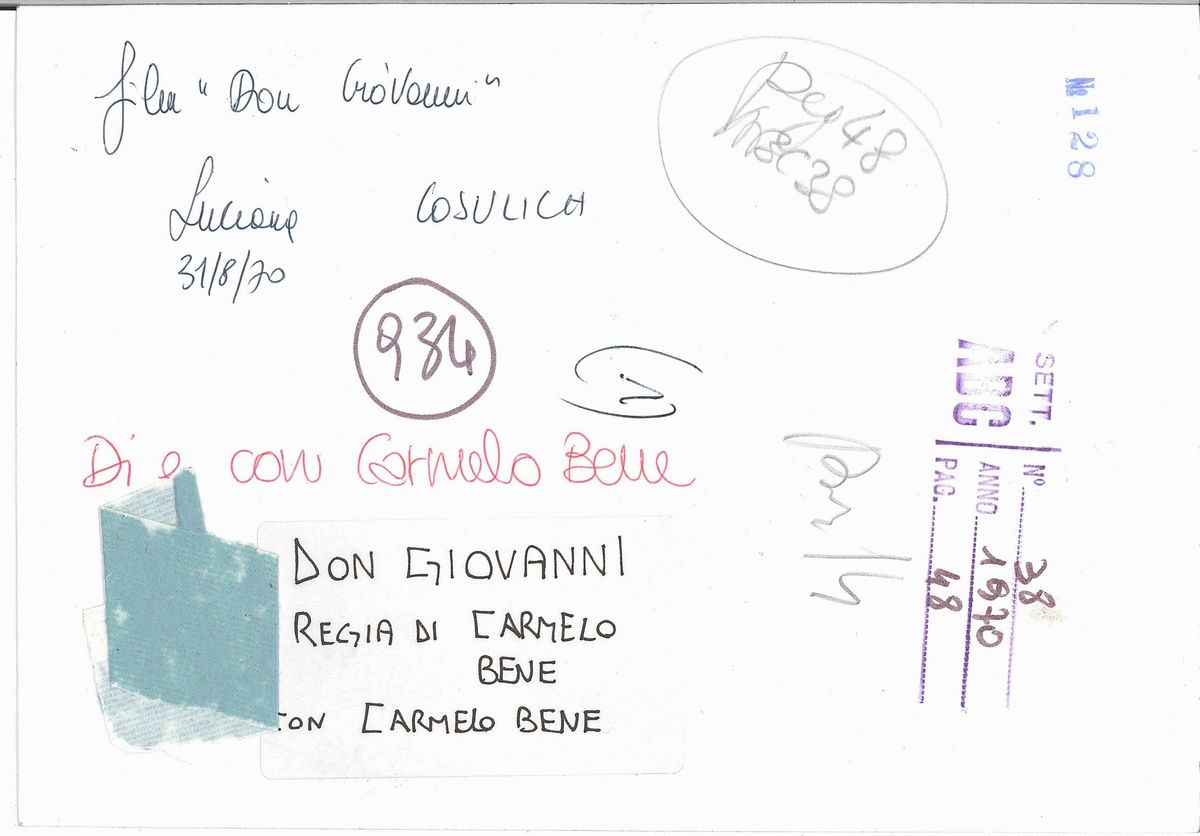 film "Don Giovanni"
Luciana COSULICH
31/8/70
Pag 48
38
Nº 128
934
Di e con Carmelo Bene
DON GIOVANNI
REGIA DI CARMELO
BENE
CON CARMELO BENE
SETT.
ABC
Nº 38
ANNO 1970
PAG. 48